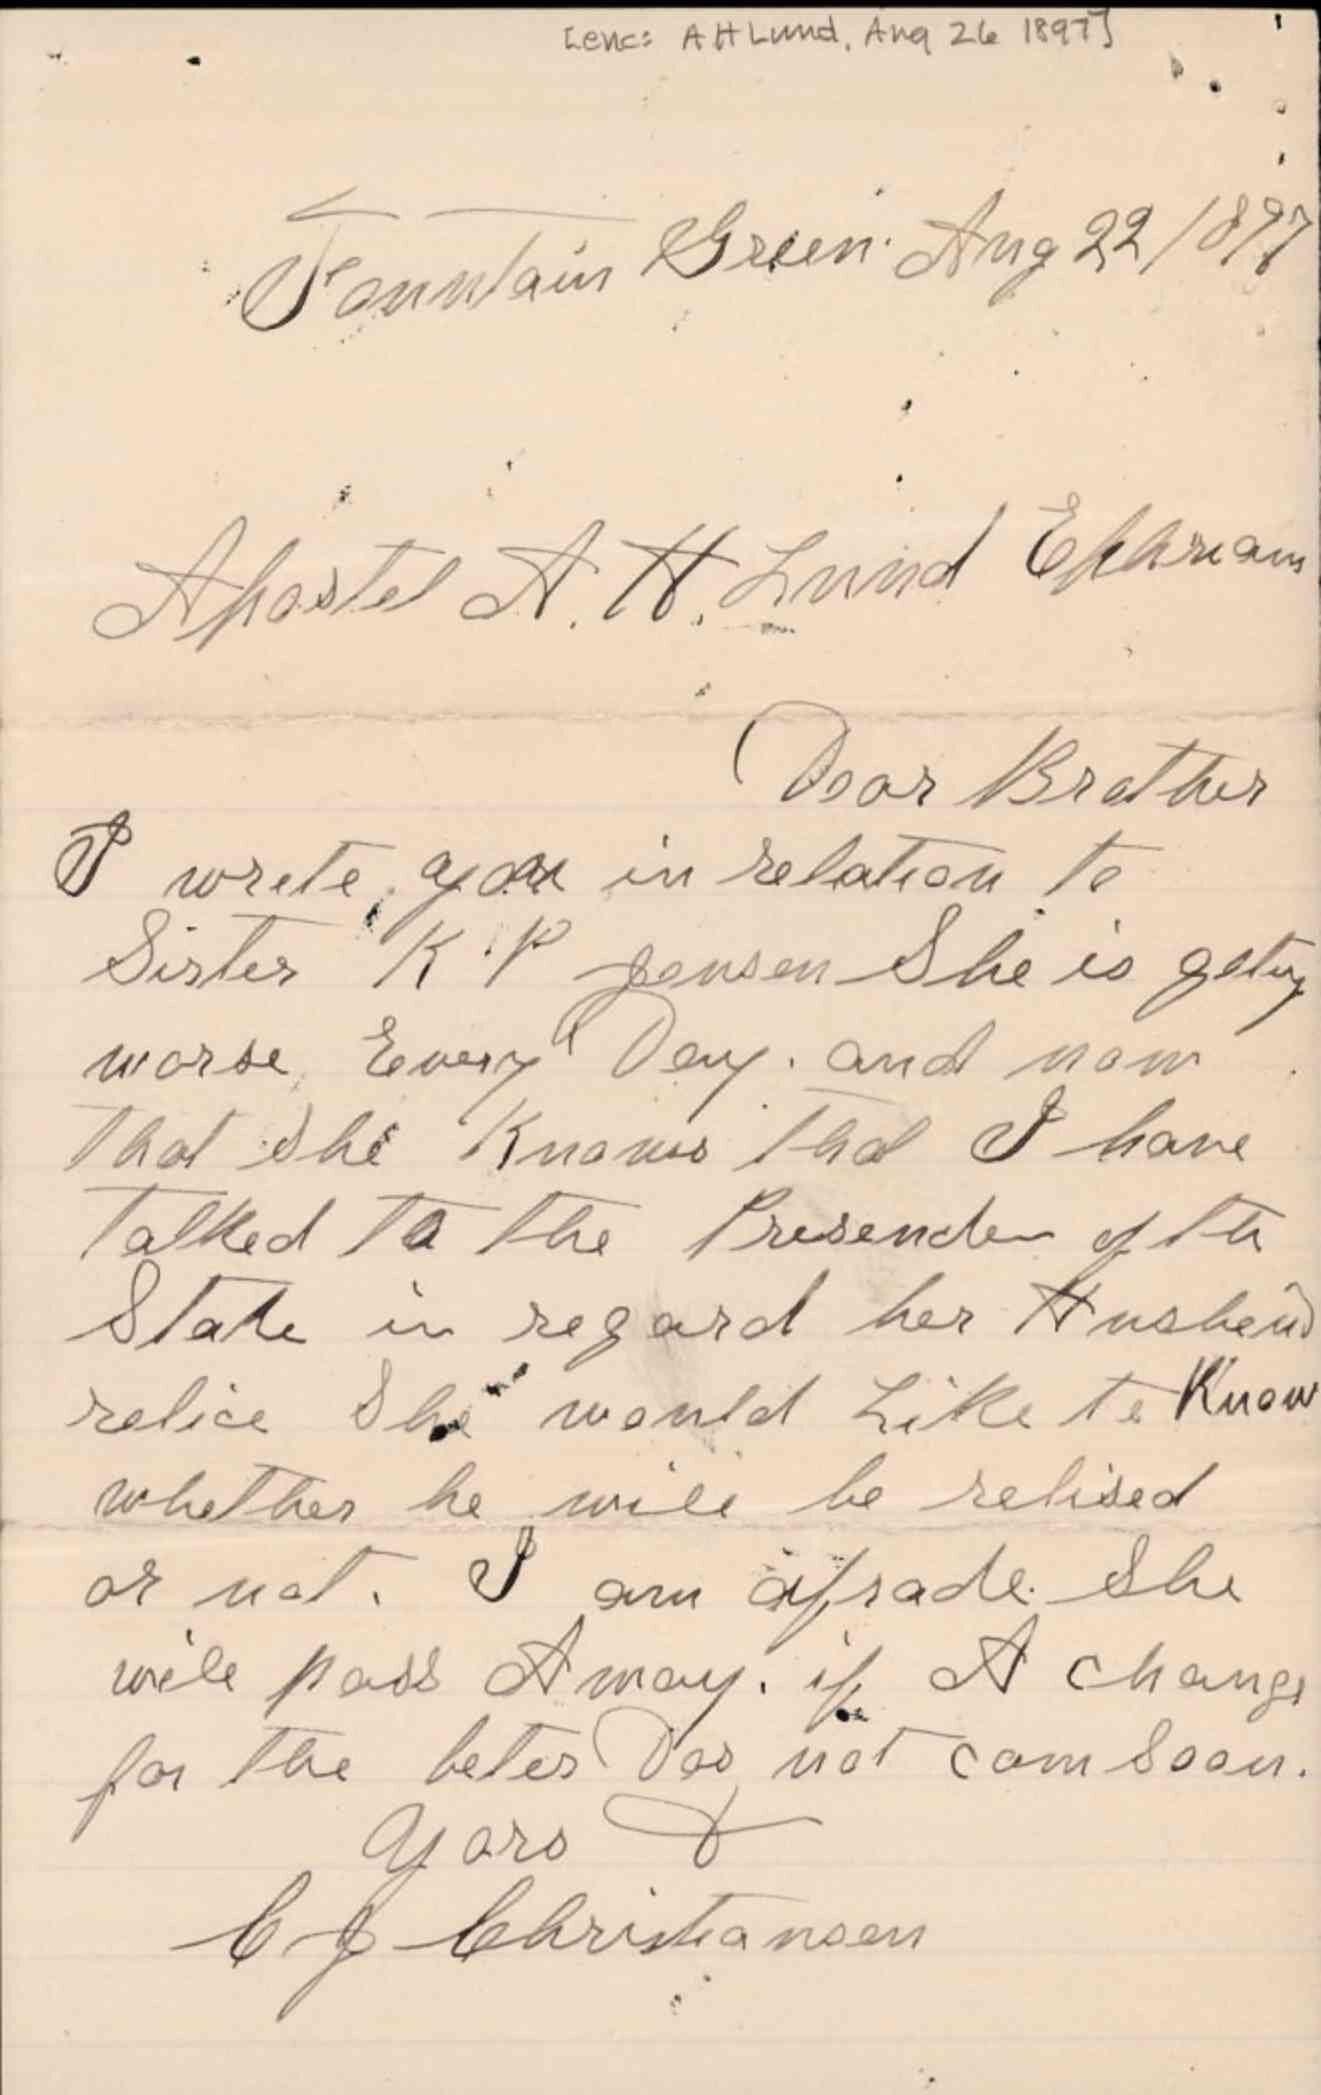 [enc: A H Lund, Aug 26 1897]
Fountain Green. Aug 22/1897
Apostel A. H. Lund Ephriam
Dear Brother
I wrete you in relation to
Sister K P Jensen She is geting
worse Every Day. and now
that she Knows that I have
talked to the Presenden of the
Stake in regard her Husbend
relice She would Like to Know
whether he will be relised
or not. I am afrade She
will pass Away. if A change
for the beter Das not com Soon.
Yors
C J Christiansen